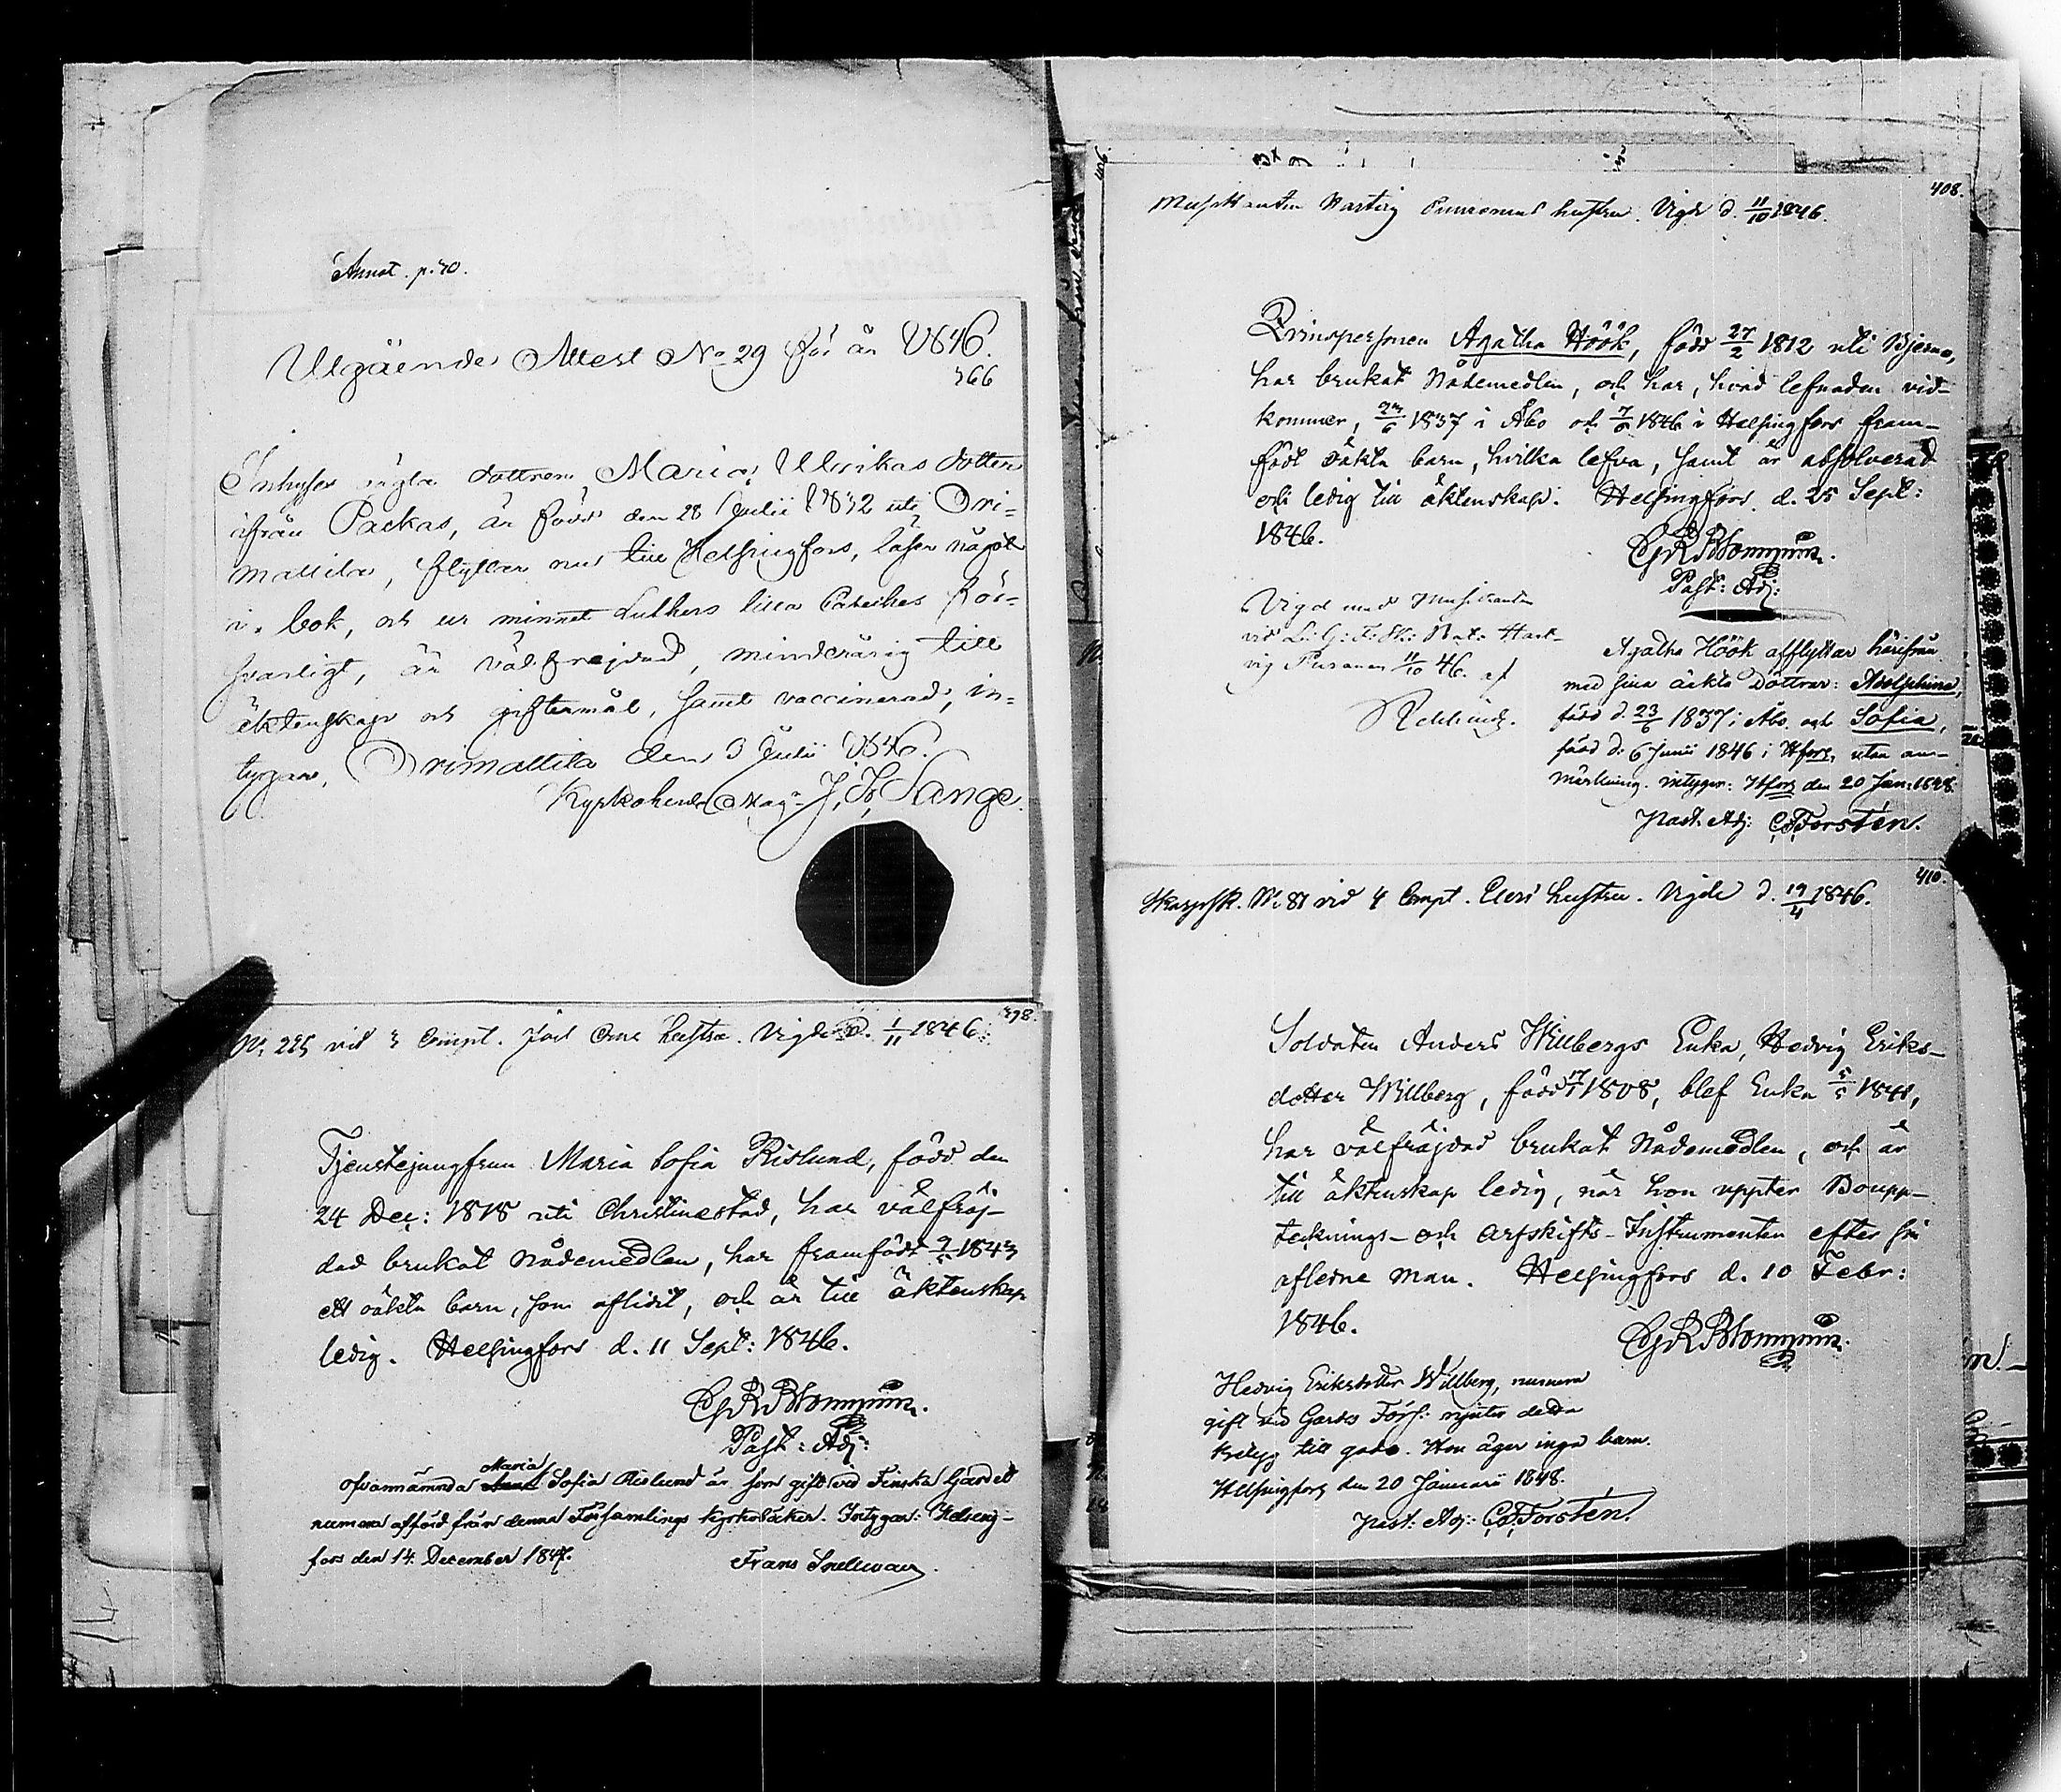 Annot. p. 70.
Utgående Attest No 29 för år 1846.
366
Inhyses dottren Maria Ulrikas dotter
ifrån Packas, är född den 28 Julii 1832 uti Ori-
mattila, flyttar nu till Helsingfors, läser något
i bok, och ur minnet Luthers lilla Cateches för-
svarligt, är välfrejdad, minderårig till
äktenskap och giftermål, samt vaccinerad; in-
tygar, Orimattila den 3 Julii 1846.
Kyrkoherde Mag. J. H. Lange.
398.
No 225 vid 3 Compt. hustru. Vigde d. 1/11 1846.
Tjenstejungfrun Maria Sofia Rislund, född den
24 Dec: 1818 uti Christinestad, har välfräj-
dad brukat Nådemedlen, har framfödt 1843
ett oäkta barn, som aflidit, och är till äktenskap
ledig. Helsingfors d. 11 Sept: 1846.
Past: Adj:
Maria
ofvannämnda Anna Sofia Rislund är som gift vid Finska Gardet
numera afförd från denna Församlings kyrkoböcker. Intygar: Helsing-
fors den 14 December 1847.
Frans Snellman.
408.
Musikanten Hartvig Puronens hustru. Vigde d. 11/10 1846.
Qvinspersonen Agatha Höök, född 27/2 1812 uti Bjerno,
har brukat Nådemedlen, och har, hvad lefnaden vid-
kommer, 23/6 1837 i Åbo och 1846 i Helsingfors fram-
födt oäkta barn, hvilka lefva, samt är absolverad
och ledig till äktenskap. Helsingfors d. 25 Sept:
1846.
Past: Adj:
Vigd med Musikanten
vid L: G: F: Sk: Bat: Hart-
vig Puranen 11/10 46. af
Agatha Höök afflyttar härifrån
med sina oäkta Döttrar: Adolphina,
född d. 23/6 1837 i Åbo och Sofia,
född d: 6 Junii 1846 i Hfors, utan an-
märkning. intygar: Hfors den 20 Jan: 1848.
Past. Adj: Forstén.
410.
Skarpsk. No 87 vid 4 Compt. hustru. Vigde d. 19/4 1846.
Soldaten Anders Willbergs Enka, Hedvig Eriks-
dotter Willberg, född 1808, blef Enka 1841,
har välfräjdad brukat Nådemedlen, och är
till äktenskap ledig, när hon uppter Boupp-
tecknings- och Arfskifts-Instrumenten efter sin
aflidne man. Helsingfors d. 10 Febr:
1846.
Hedvig Eriksdotter Willberg, numera
gift vid Gardes Förs: njuter detta
betyg till godo. Hon äger inga barn.
Helsingfors den 20 Januarii 1848.
Past: Adj: Forstén.